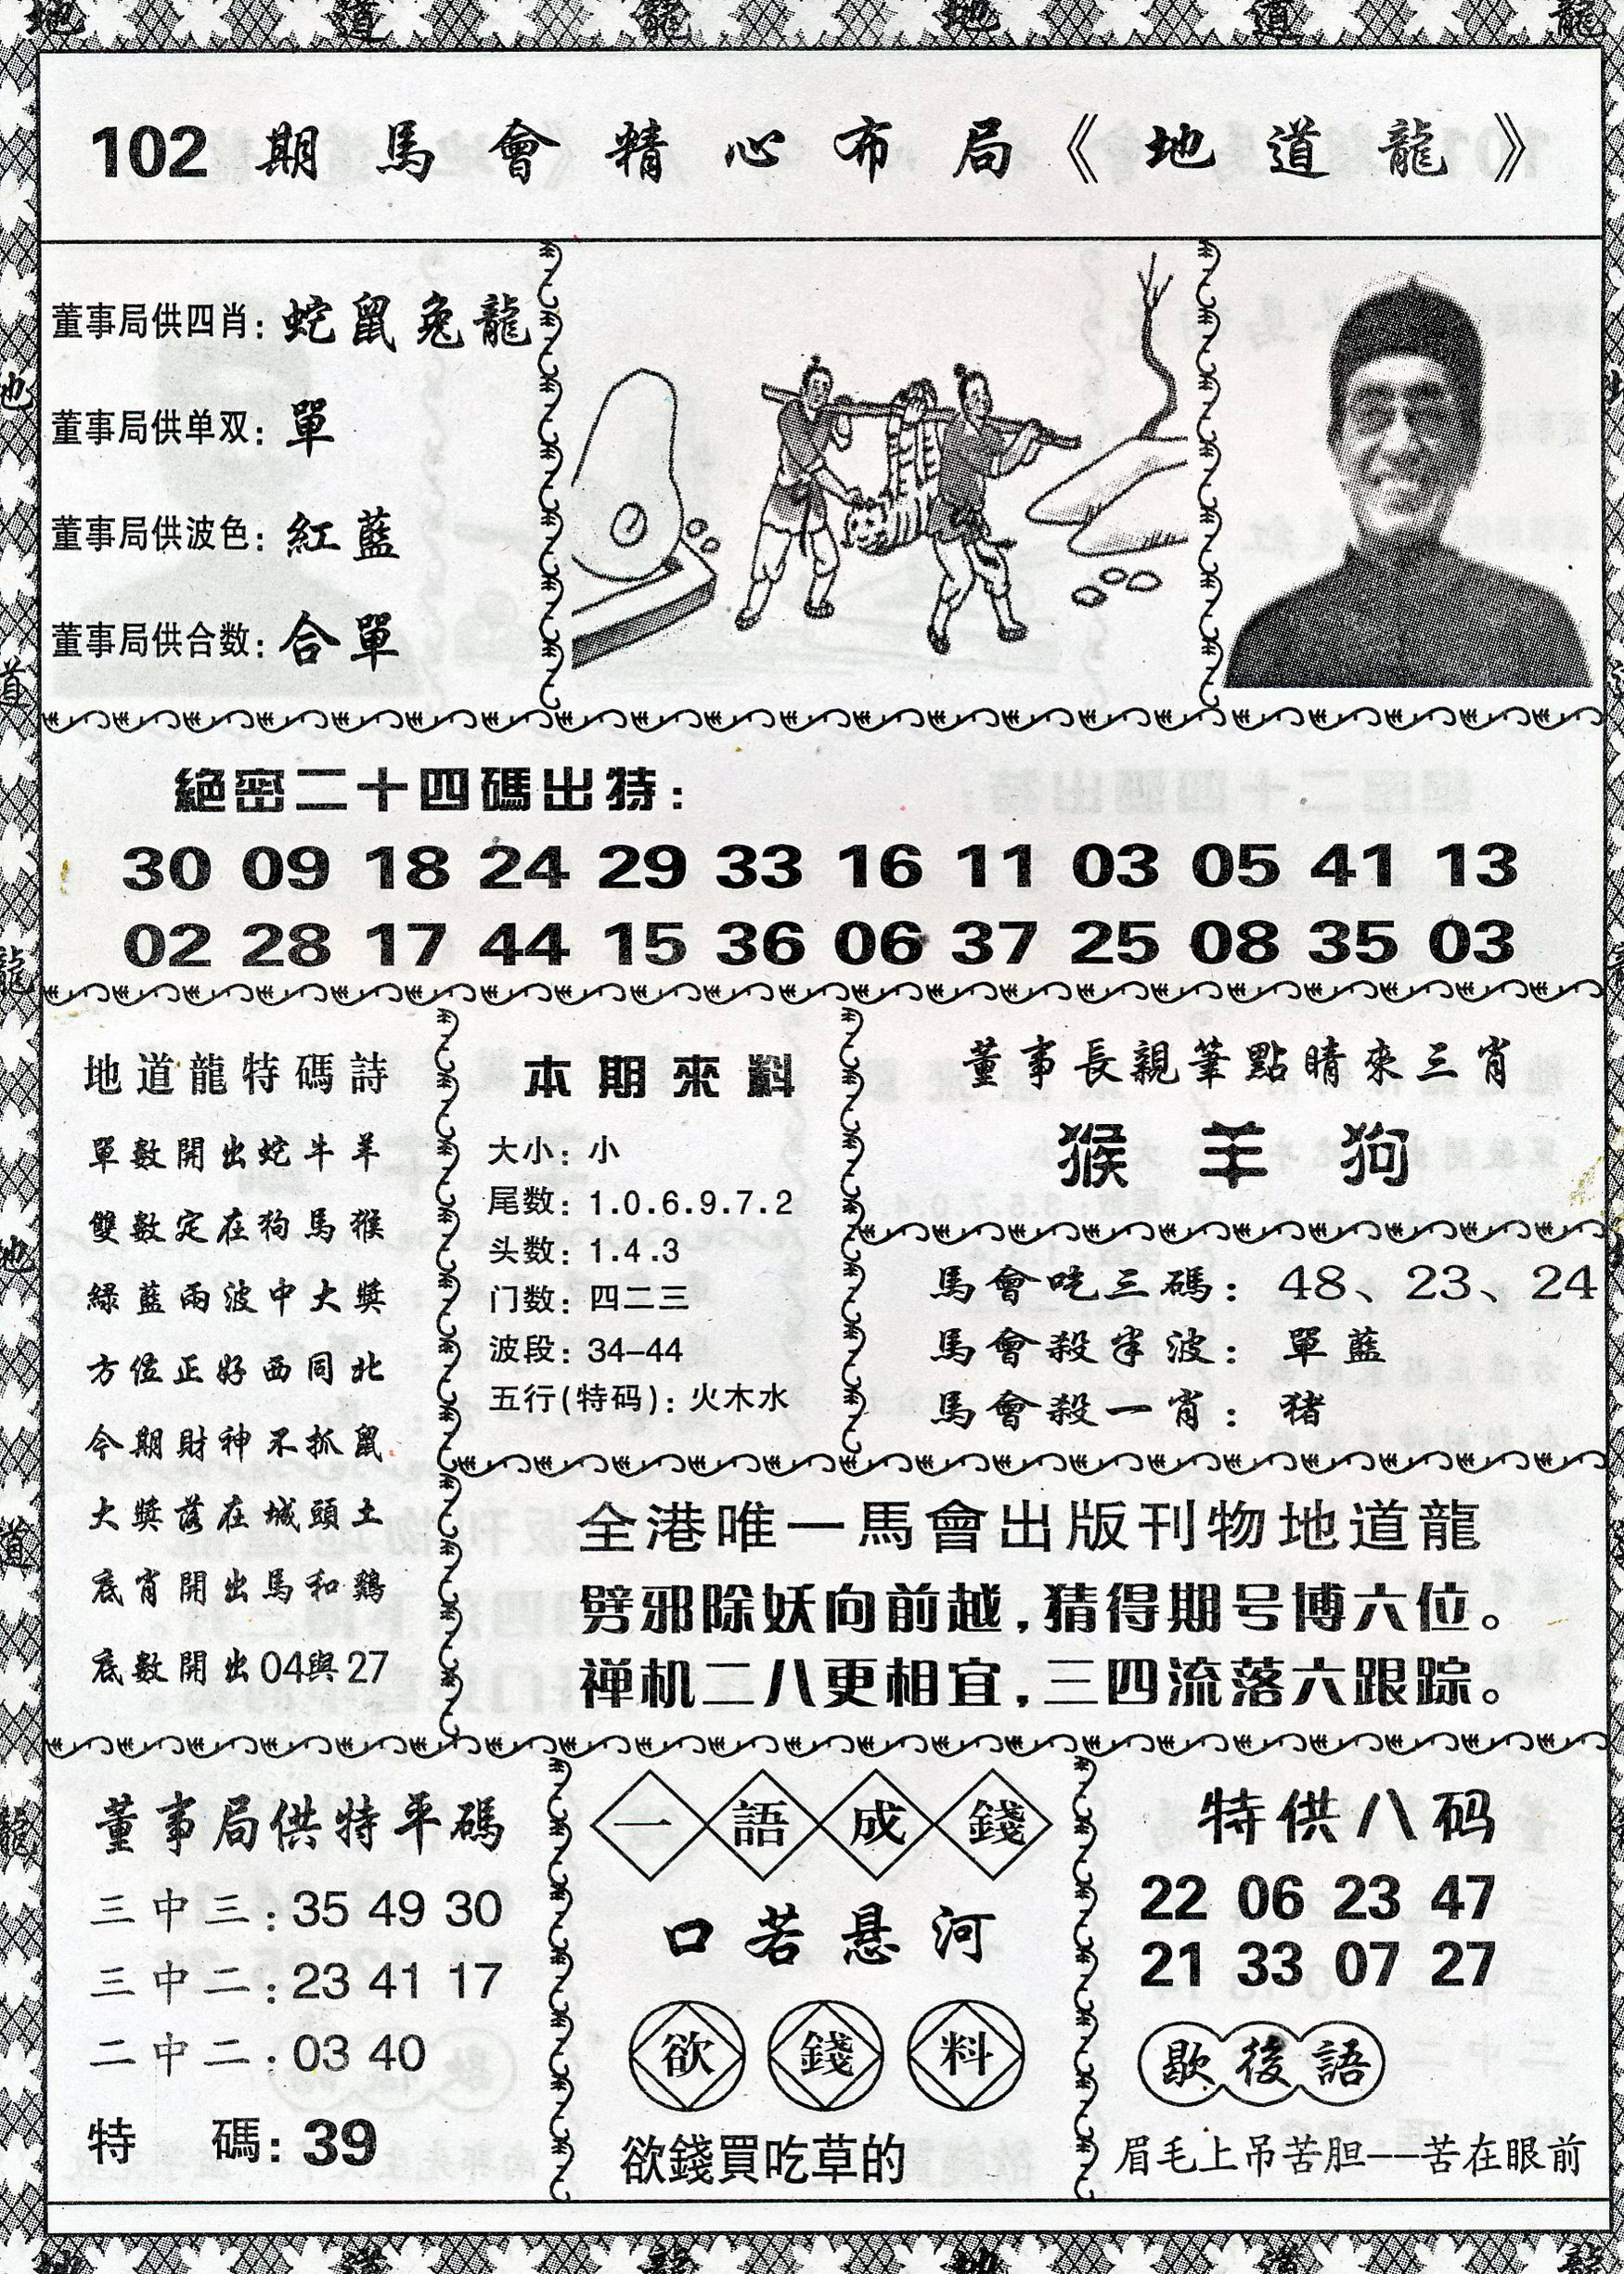 地 道 龍 地 道 龍
102 期馬會精心布局《地道龍》
董事局供四肖: 蛇鼠兔龍
董事局供单双: 單
董事局供波色: 紅藍
董事局供合数: 合單
絕密二十四碼出特:
30 09 18 24 29 33 16 11 03 05 41 13
02 28 17 44 15 36 06 37 25 08 35 03
地道龍特碼詩
單數開出蛇牛羊
雙數定在狗馬猴
綠藍兩波中大獎
方位正好西同北
今期財神不抓鼠
大獎落在城頭土
底肖開出馬和鷄
底數開出04與27
本期來料
大小: 小
尾数: 1.0.6.9.7.2
头数: 1.4.3
门数: 四二三
波段: 34-44
五行(特码): 火木水
董事長親筆點睛來三肖
猴 羊 狗
馬會吃三碼: 48、23、24
馬會殺半波: 單藍
馬會殺一肖: 猪
全港唯一馬會出版刊物地道龍
劈邪除妖向前越,猜得期号博六位。
禅机二八更相宜,三四流落六跟踪。
董事局供特平碼
三中三: 35 49 30
三中二: 23 41 17
二中二: 03 40
特 碼: 39
一語成錢
口若悬河
欲錢料
欲錢買吃草的
特供八码
22 06 23 47
21 33 07 27
歇後語
眉毛上吊苦胆——苦在眼前
地 道 龍 地 道 龍